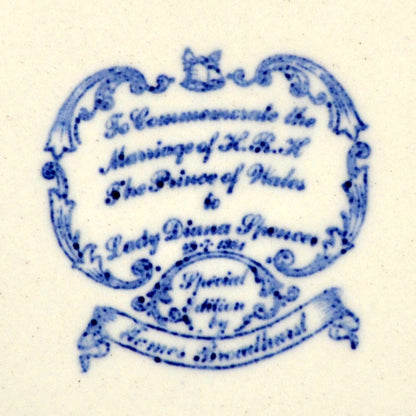 To Commemorate the
Marriage of H.R.H
The Prince of Wales
to
Lady Diana Spencer
29.7.1981
Special
Edition
by
James Broadhurst